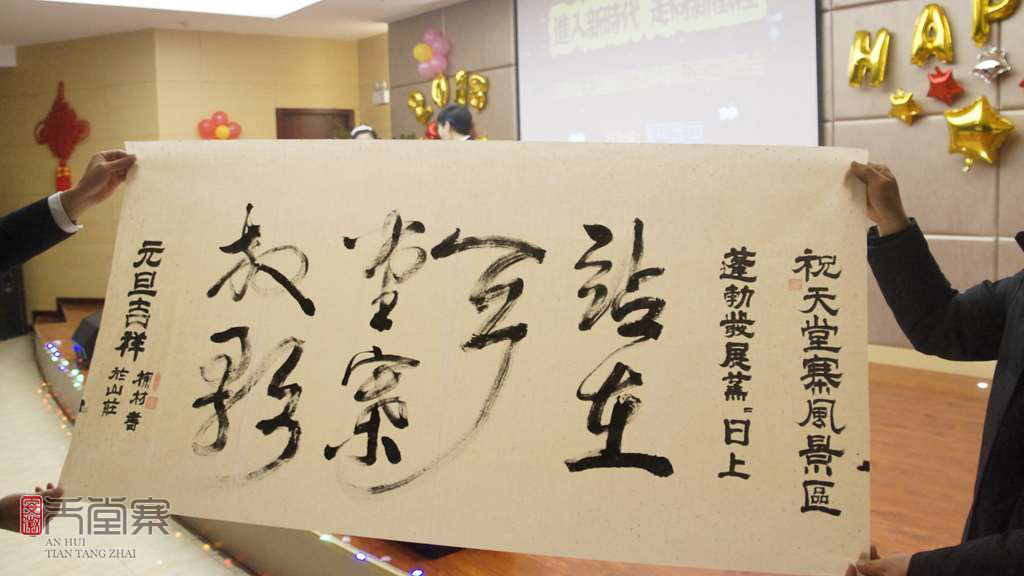 進入新时代 走向新征程
HAP
2018
祝天堂寨風景區
蓬勃發展蒸〃日上
站在
天
堂寨
元旦吉祥
於山莊
安徽
天堂寨
AN HUI
TIAN TANG ZHAI